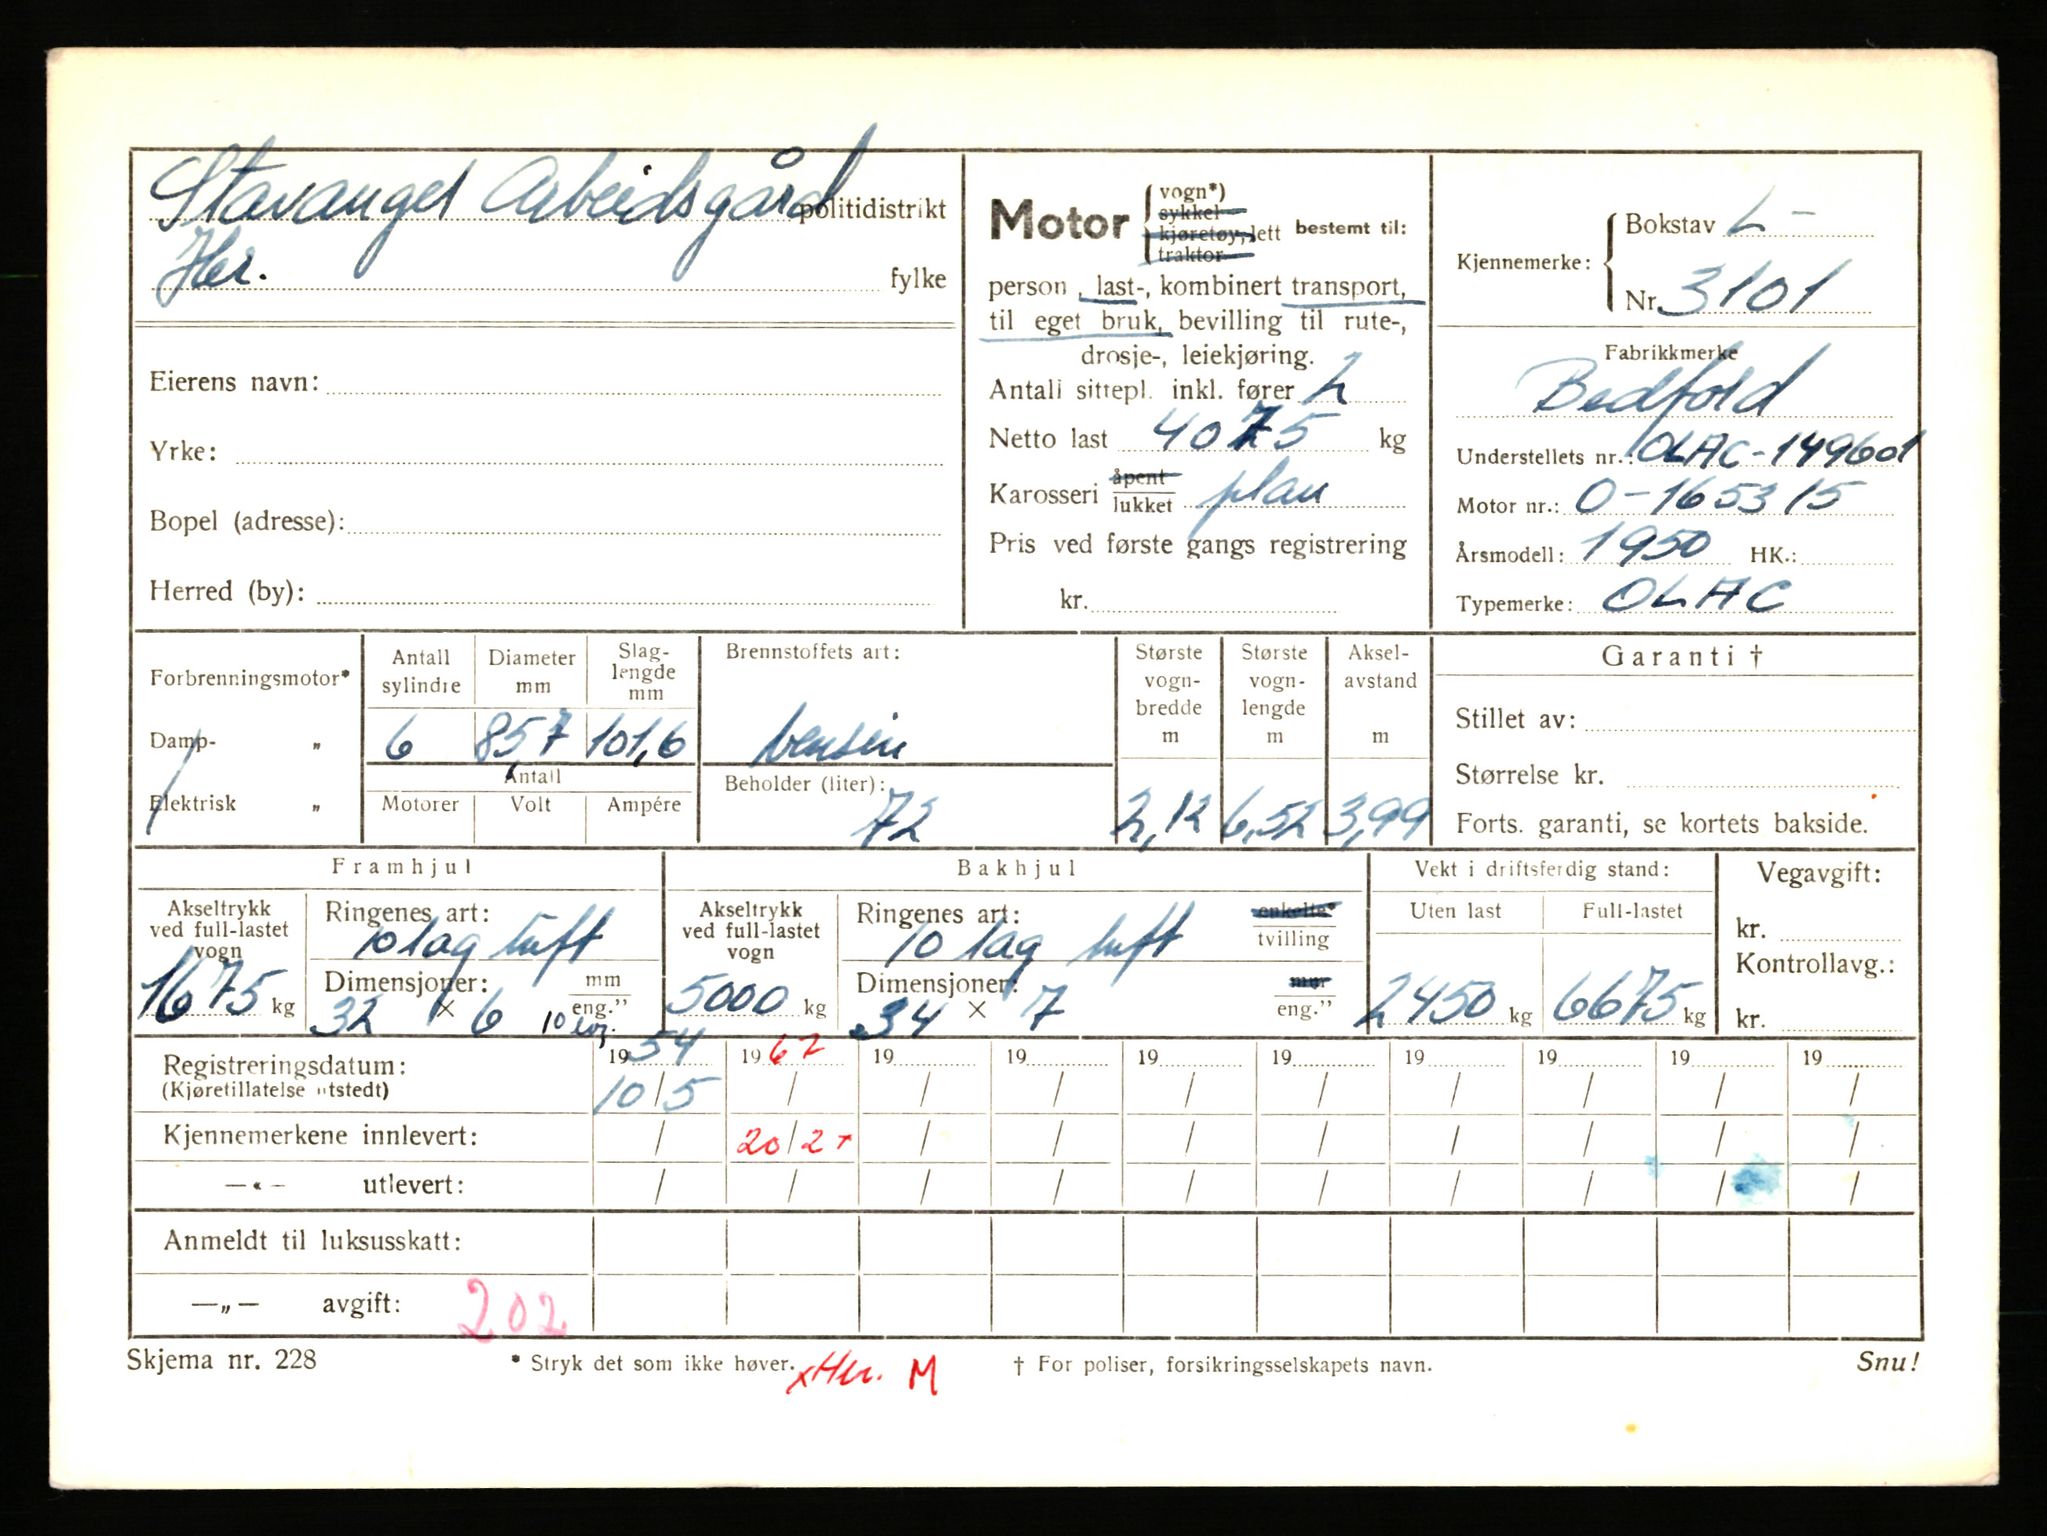 Stavanger Arbeidsgård politidistrikt
Her. fylke
Eierens navn:
Yrke:
Bopel (adresse):
Herred (by):
Motor vogn*) sykkel kjøretøy, lett traktor bestemt til:
person , last-, kombinert transport,
til eget bruk, bevilling til rute-,
drosje-, leiekjøring.
Antall sittepl. inkl. fører 2
Netto last 4075 kg
Karosseri åpent lukket plan
Pris ved første gangs registrering
kr.
Kjennemerke: Bokstav L-
Nr. 3101
Fabrikkmerke
Bedford
Understellets nr.: OLAC-149601
Motor nr.: O-165315
Årsmodell: 1950 HK.:
Typemerke: OLAC
Forbrenningsmotor*
Damp- „
Elektrisk „
Antall sylindre
6
Diameter mm
85,7
Slag-lengde mm
101,6
Antall
Motorer Volt Ampére
Brennstoffets art:
bensin
Beholder (liter):
72
Største vogn-bredde m
2,12
Største vogn-lengde m
6,52
Aksel-avstand m
3,99
Garanti †
Stillet av:
Størrelse kr.
Forts. garanti, se kortets bakside.
Framhjul
Akseltrykk ved full-lastet vogn
1675 kg
Ringenes art:
10 lag luft
Dimensjoner: mm eng."
32 × 6 10 lag.
Bakhjul
Akseltrykk ved full-lastet vogn
5000 kg
Ringenes art: enkelte* tvilling
10 lag luft
Dimensjoner: mm eng."
34 × 7
Vekt i driftsferdig stand:
Uten last Full-lastet
2450 kg 6675 kg
Vegavgift:
kr.
Kontrollavg.:
kr.
Registreringsdatum: 1954 1962 19 19 19 19 19 19 19 19
(Kjøretillatelse utstedt) 10/5 / / / / / / / / /
Kjennemerkene innlevert: / 20/2 × / / / / / / / /
—«— utlevert: / / / / / / / / / /
Anmeldt til luksusskatt:
—„— avgift: 202
Skjema nr. 228 * Stryk det som ikke høver. × Her. M † For poliser, forsikringsselskapets navn. Snu!